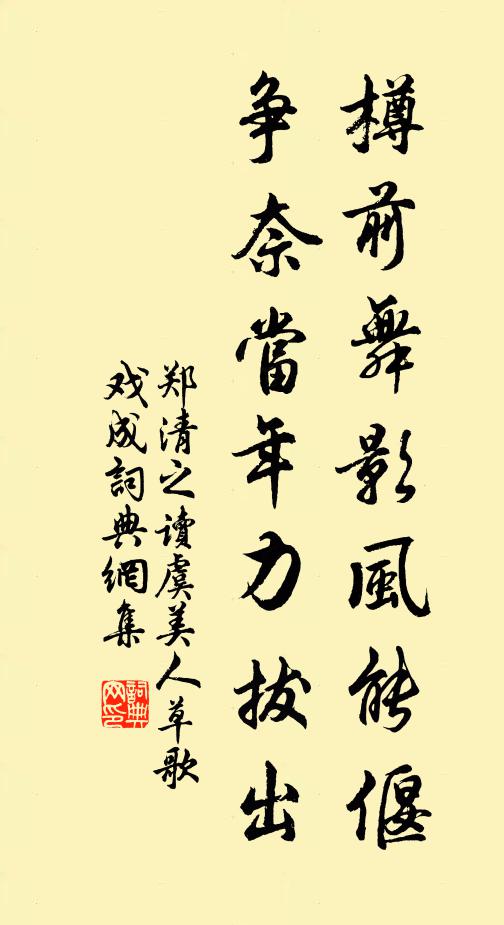 樽前舞影風能偃
争奈當年力拔出
郑清之讀虞美人草歌
戏成詞典網集
詞典